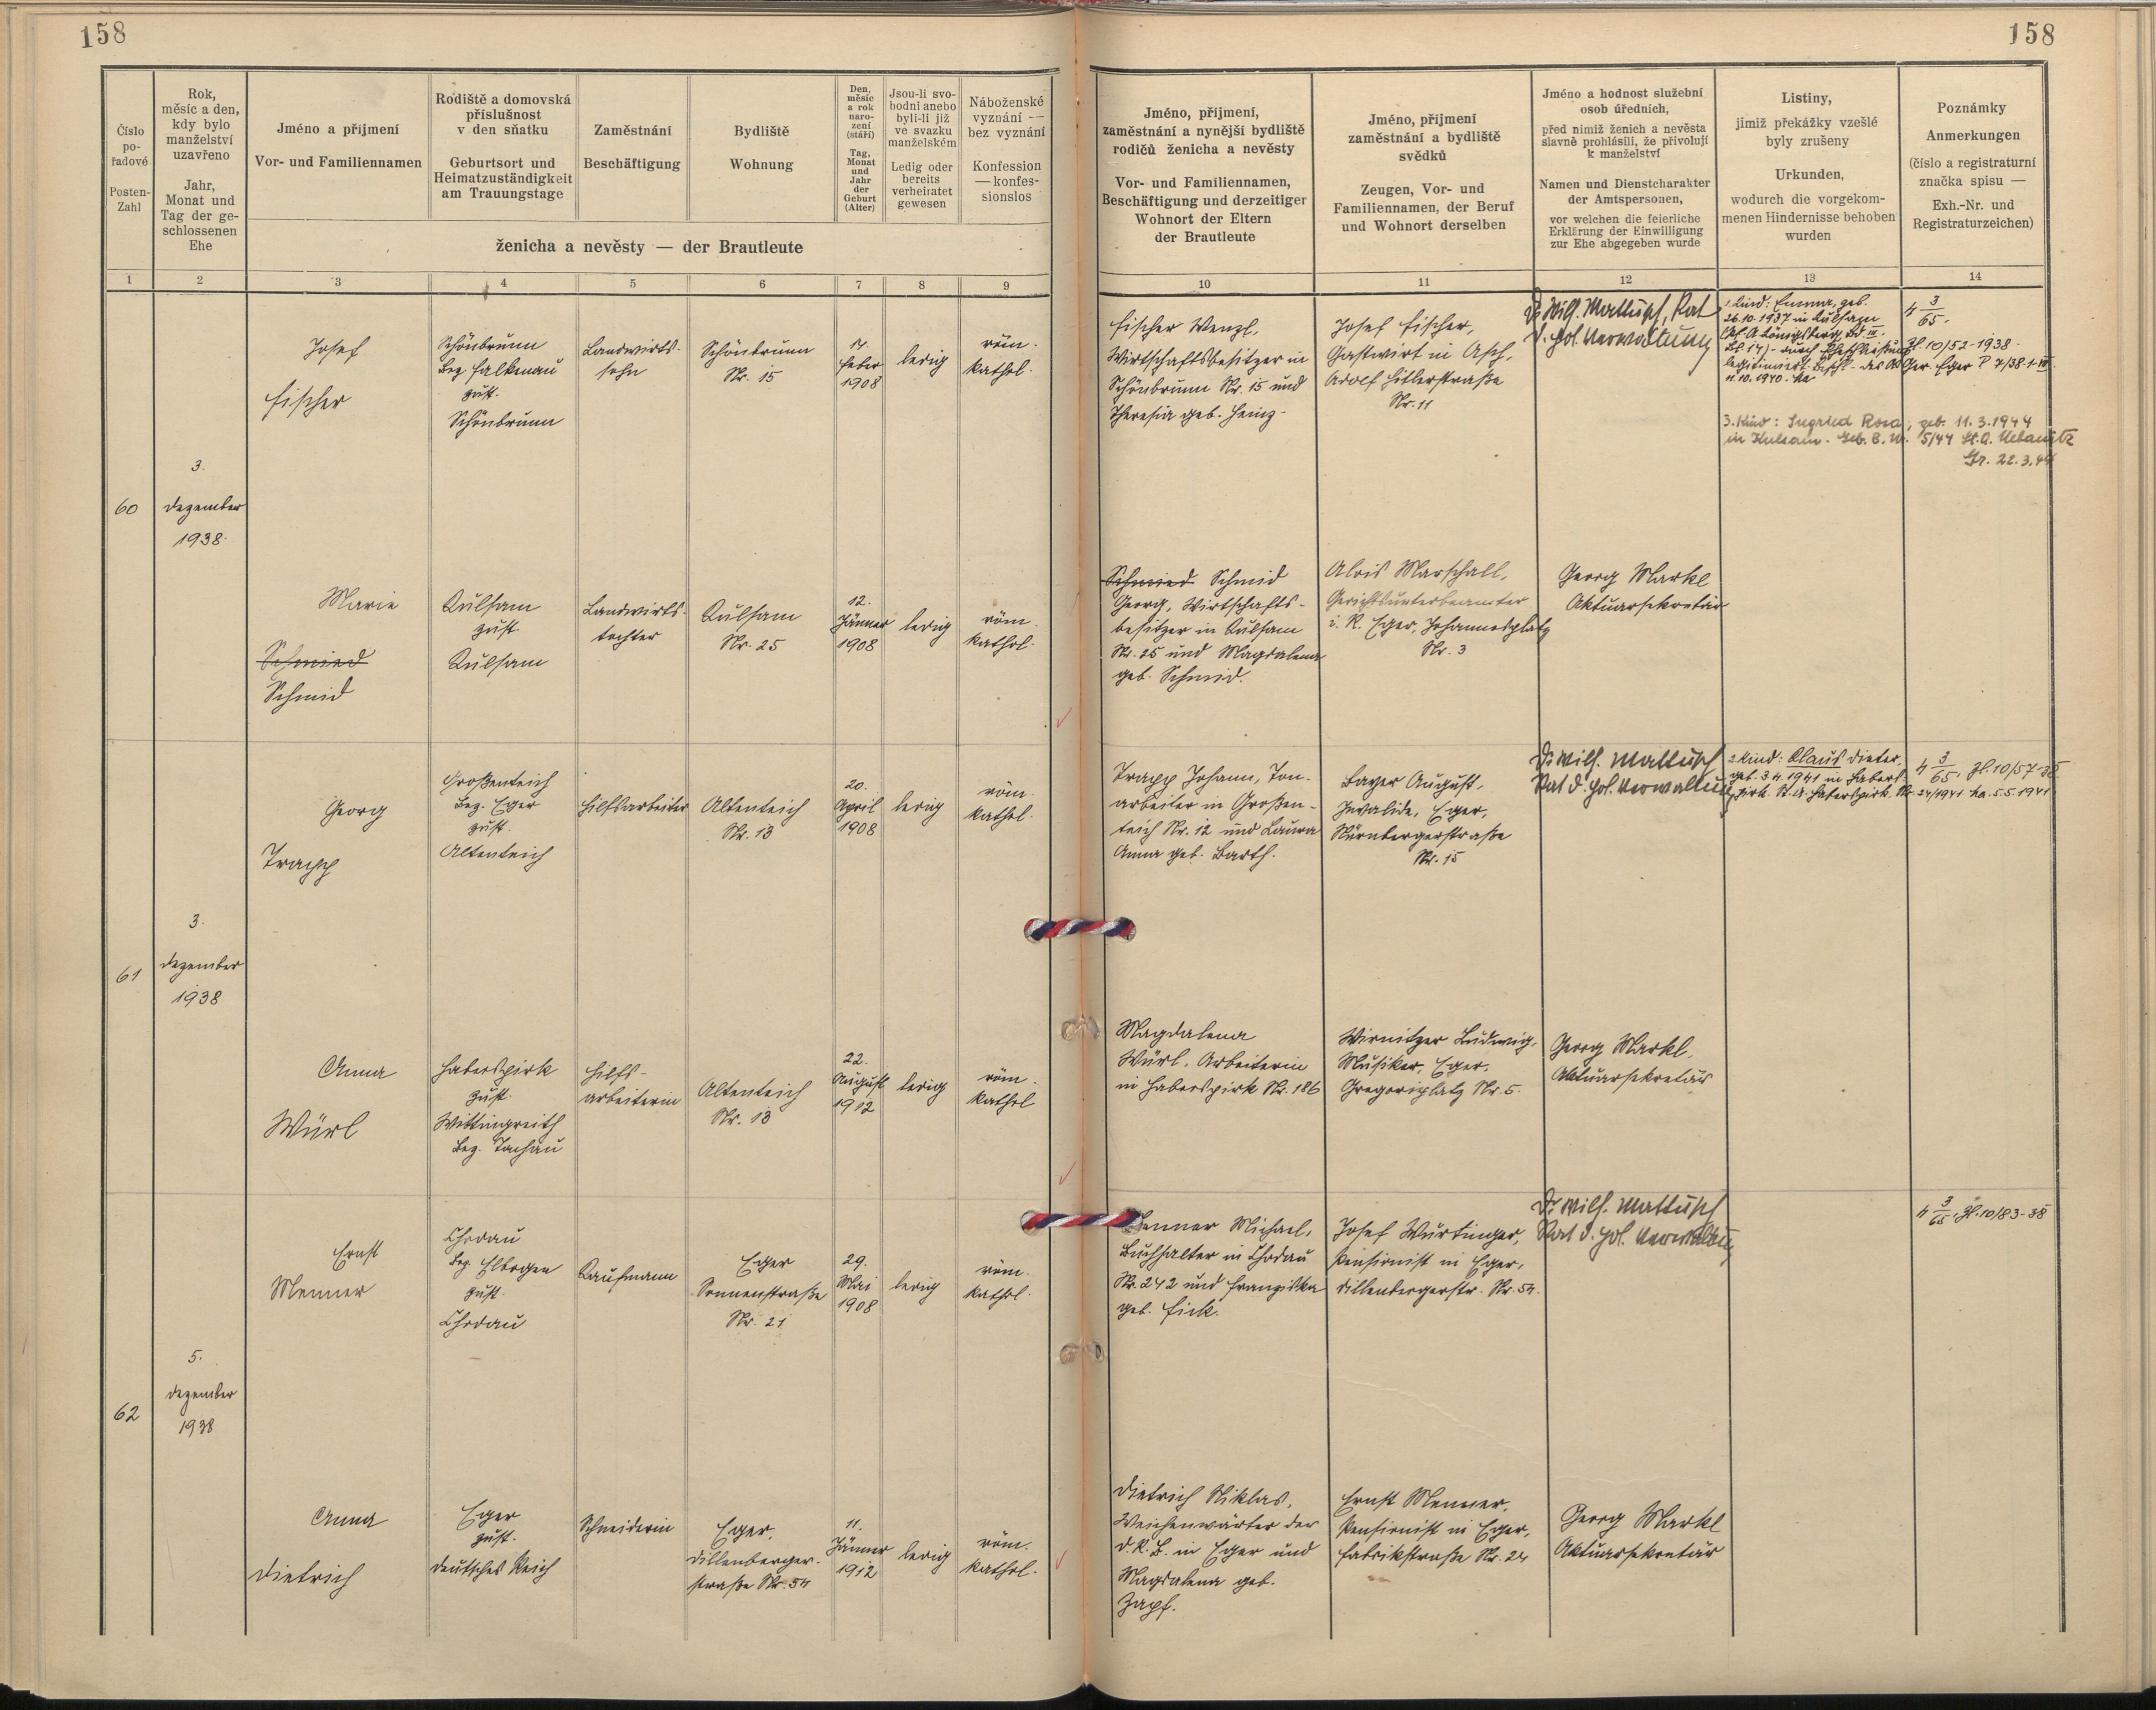 158
158
Číslo po-řadové
Posten-Zahl
Rok, měsíc a den, kdy bylo manželství uzavřeno
Jahr, Monat und Tag der ge-schlossenen Ehe
Jméno a příjmení
Vor- und Familiennamen
Rodiště a domovská příslušnost v den sňatku
Geburtsort und Heimatzuständigkeit am Trauungstage
Zaměstnání
Beschäftigung
Bydliště
Wohnung
Den, měsíc a rok naro-zení (stáří)
Tag, Monat und Jahr der Geburt (Alter)
Jsou-li svo-bodni anebo byli-li již ve svazku manželském
Ledig oder bereits verheiratet gewesen
Náboženské vyznání — bez vyznání
Konfession — konfes-sionslos
ženicha a nevěsty — der Brautleute
Jméno, příjmení, zaměstnání a nynější bydliště rodičů ženicha a nevěsty
Vor- und Familiennamen, Beschäftigung und derzeitiger Wohnort der Eltern der Brautleute
Jméno, příjmení zaměstnání a bydliště svědků
Zeugen, Vor- und Familiennamen, der Beruf und Wohnort derselben
Jméno a hodnost služební osob úředních,
před nimiž ženich a nevěsta slavně prohlásili, že přivolují k manželství
Namen und Dienstcharakter der Amtspersonen,
vor welchen die feierliche Erklärung der Einwilligung zur Ehe abgegeben wurde
Listiny,
jimiž překážky vzešlé byly zrušeny
Urkunden,
wodurch die vorgekom-menen Hindernisse behoben wurden
Poznámky
Anmerkungen
(číslo a registraturní značka spisu —
Exh.-Nr. und Registraturzeichen)
1 2 3 4 5 6 7 8 9 10 11 12 13 14
60
3.
Dezember
1938.
Josef
Fischer
Schönbrunn
Bez. Falkenau
zust.
Schönbrunn
Landwirts-
sohn
Schönbrunn
Nr. 15
Feber
1908
ledig
röm.
kathol.
Fischer Wenzl,
Wirtschaftsbesitzer in
Schönbrunn Nr. 15 und
Theresia geb. Heinz.
Josef Fischer,
Gastwirt in Asch,
Adolf Hitlerstraße
Nr. 11
Dr. Wilh. Mattusch, Rat
d. pol. Verwaltung
1. Kind: Emma, geb.
26.10.1937 in Kulsam
4 3/65.
Zl. 10/52-1938.
11.10.1940.
3. Kind: Ingried Rosa, geb. 11.3.1944
in Kulsam. Geb. B. Nr. 5/44 St.A. Nebanitz
22.3.44
Marie
Schmied
Schmid
Kulsam
zust.
Kulsam
Landwirts-
tochter
Kulsam
Nr. 25
12.
Jänner
1908
ledig
röm.
kathol.
Schmied Schmid
Georg, Wirtschafts-
besitzer in Kulsam
Nr. 25 und Magdalena
geb. Schmid.
Alois Marschall,
Gerichtsunterbeamter
i. R. Eger, Johannesplatz
Nr. 3
Georg Markl
Aktuarsekretär
61
3.
Dezember
1938
Georg
Trapp
Großenteich
Bez. Eger
zust.
Altenteich
Hilfsarbeiter
Altenteich
Nr. 13
20.
April
1908
ledig
röm.
kathol.
Trapp Johann, Ton-
arbeiter in Großen-
teich Nr. 12 und Laura
Anna geb. Barth.
Bayer August,
Invalide, Eger,
Nürnbergerstraße
Nr. 15
Dr. Wilh. Mattusch
Rat d. pol. Verwaltung
2. Kind: Klaus Dieter,
geb. 3.4.1941 in Habers-
pirk. St.A. Haberspirk Nr. 24/1941 5.5.1941
4 3/65, Zl. 10/57-38
Anna
Würl
Haberspirk
zust.
Wittingreith
Bez. Tachau
Hilfs-
arbeiterin
Altenteich
Nr. 13
22.
August
1912
ledig
röm.
kathol.
Magdalena
Würl, Arbeiterin
in Haberspirk Nr. 186
Wirnitzer Ludwig,
Musiker, Eger,
Gregoriplatz Nr. 5.
Georg Markl,
Aktuarsekretär
62
5.
Dezember
1938
Ernst
Menner
Chodau
Bez. Elbogen
zust.
Chodau
Kaufmann
Eger
Sonnenstraße
Nr. 21
29.
Mai
1908
ledig
röm.
kathol.
Menner Michael,
Buchhalter in Chodau
Nr. 242 und Franziska
geb. Fick.
Josef Würtinger,
Pensionist in Eger,
Dillenbergerstr. Nr. 54.
Dr. Wilh. Mattusch
Rat d. pol. Verwaltung
4 3/65, Zl. 10/83-38
Anna
Dietrich
Eger
zust.
Deutsches Reich
Schneiderin
Eger,
Dillenberger-
straße Nr. 54
11.
Jänner
1912
ledig
röm.
kathol.
Dietrich Niklas,
Weichenwärter der
D.R.B. in Eger und
Magdalena geb.
Zapf.
Ernst Menner,
Pensionist in Eger,
Fabrikstraße Nr. 24
Georg Markl
Aktuarsekretär